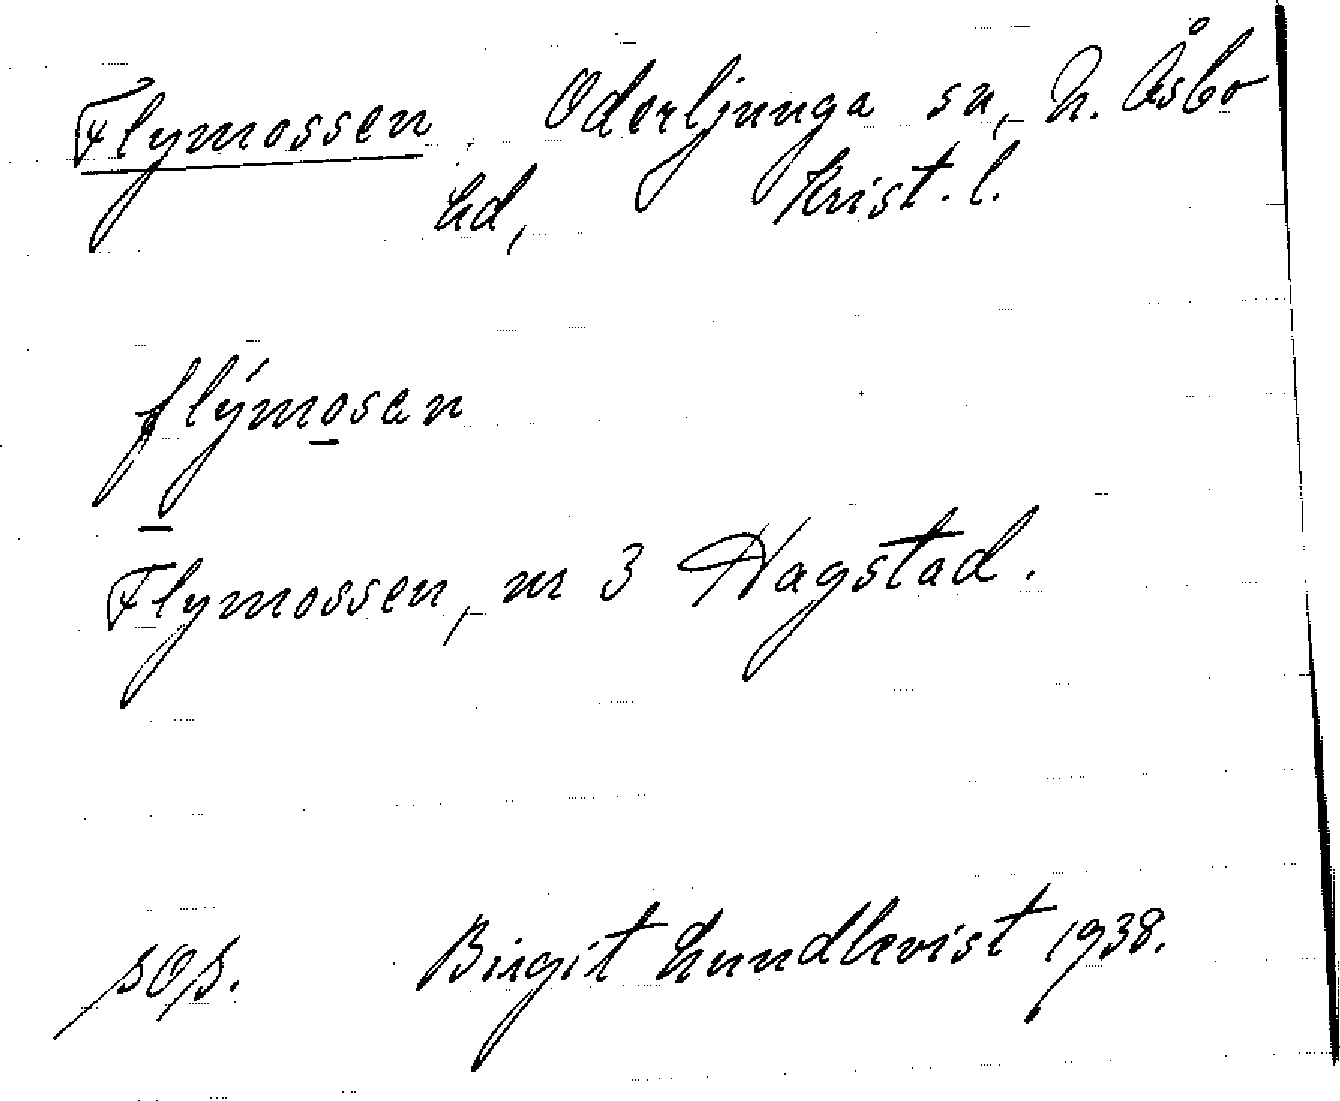 Flymossen, Oderljunga sn, N. Åsbo
hd, Krist. l.
flýmosan
Flymossen, nr 3 Hagstad.
Birgit Lundkvist 1938.